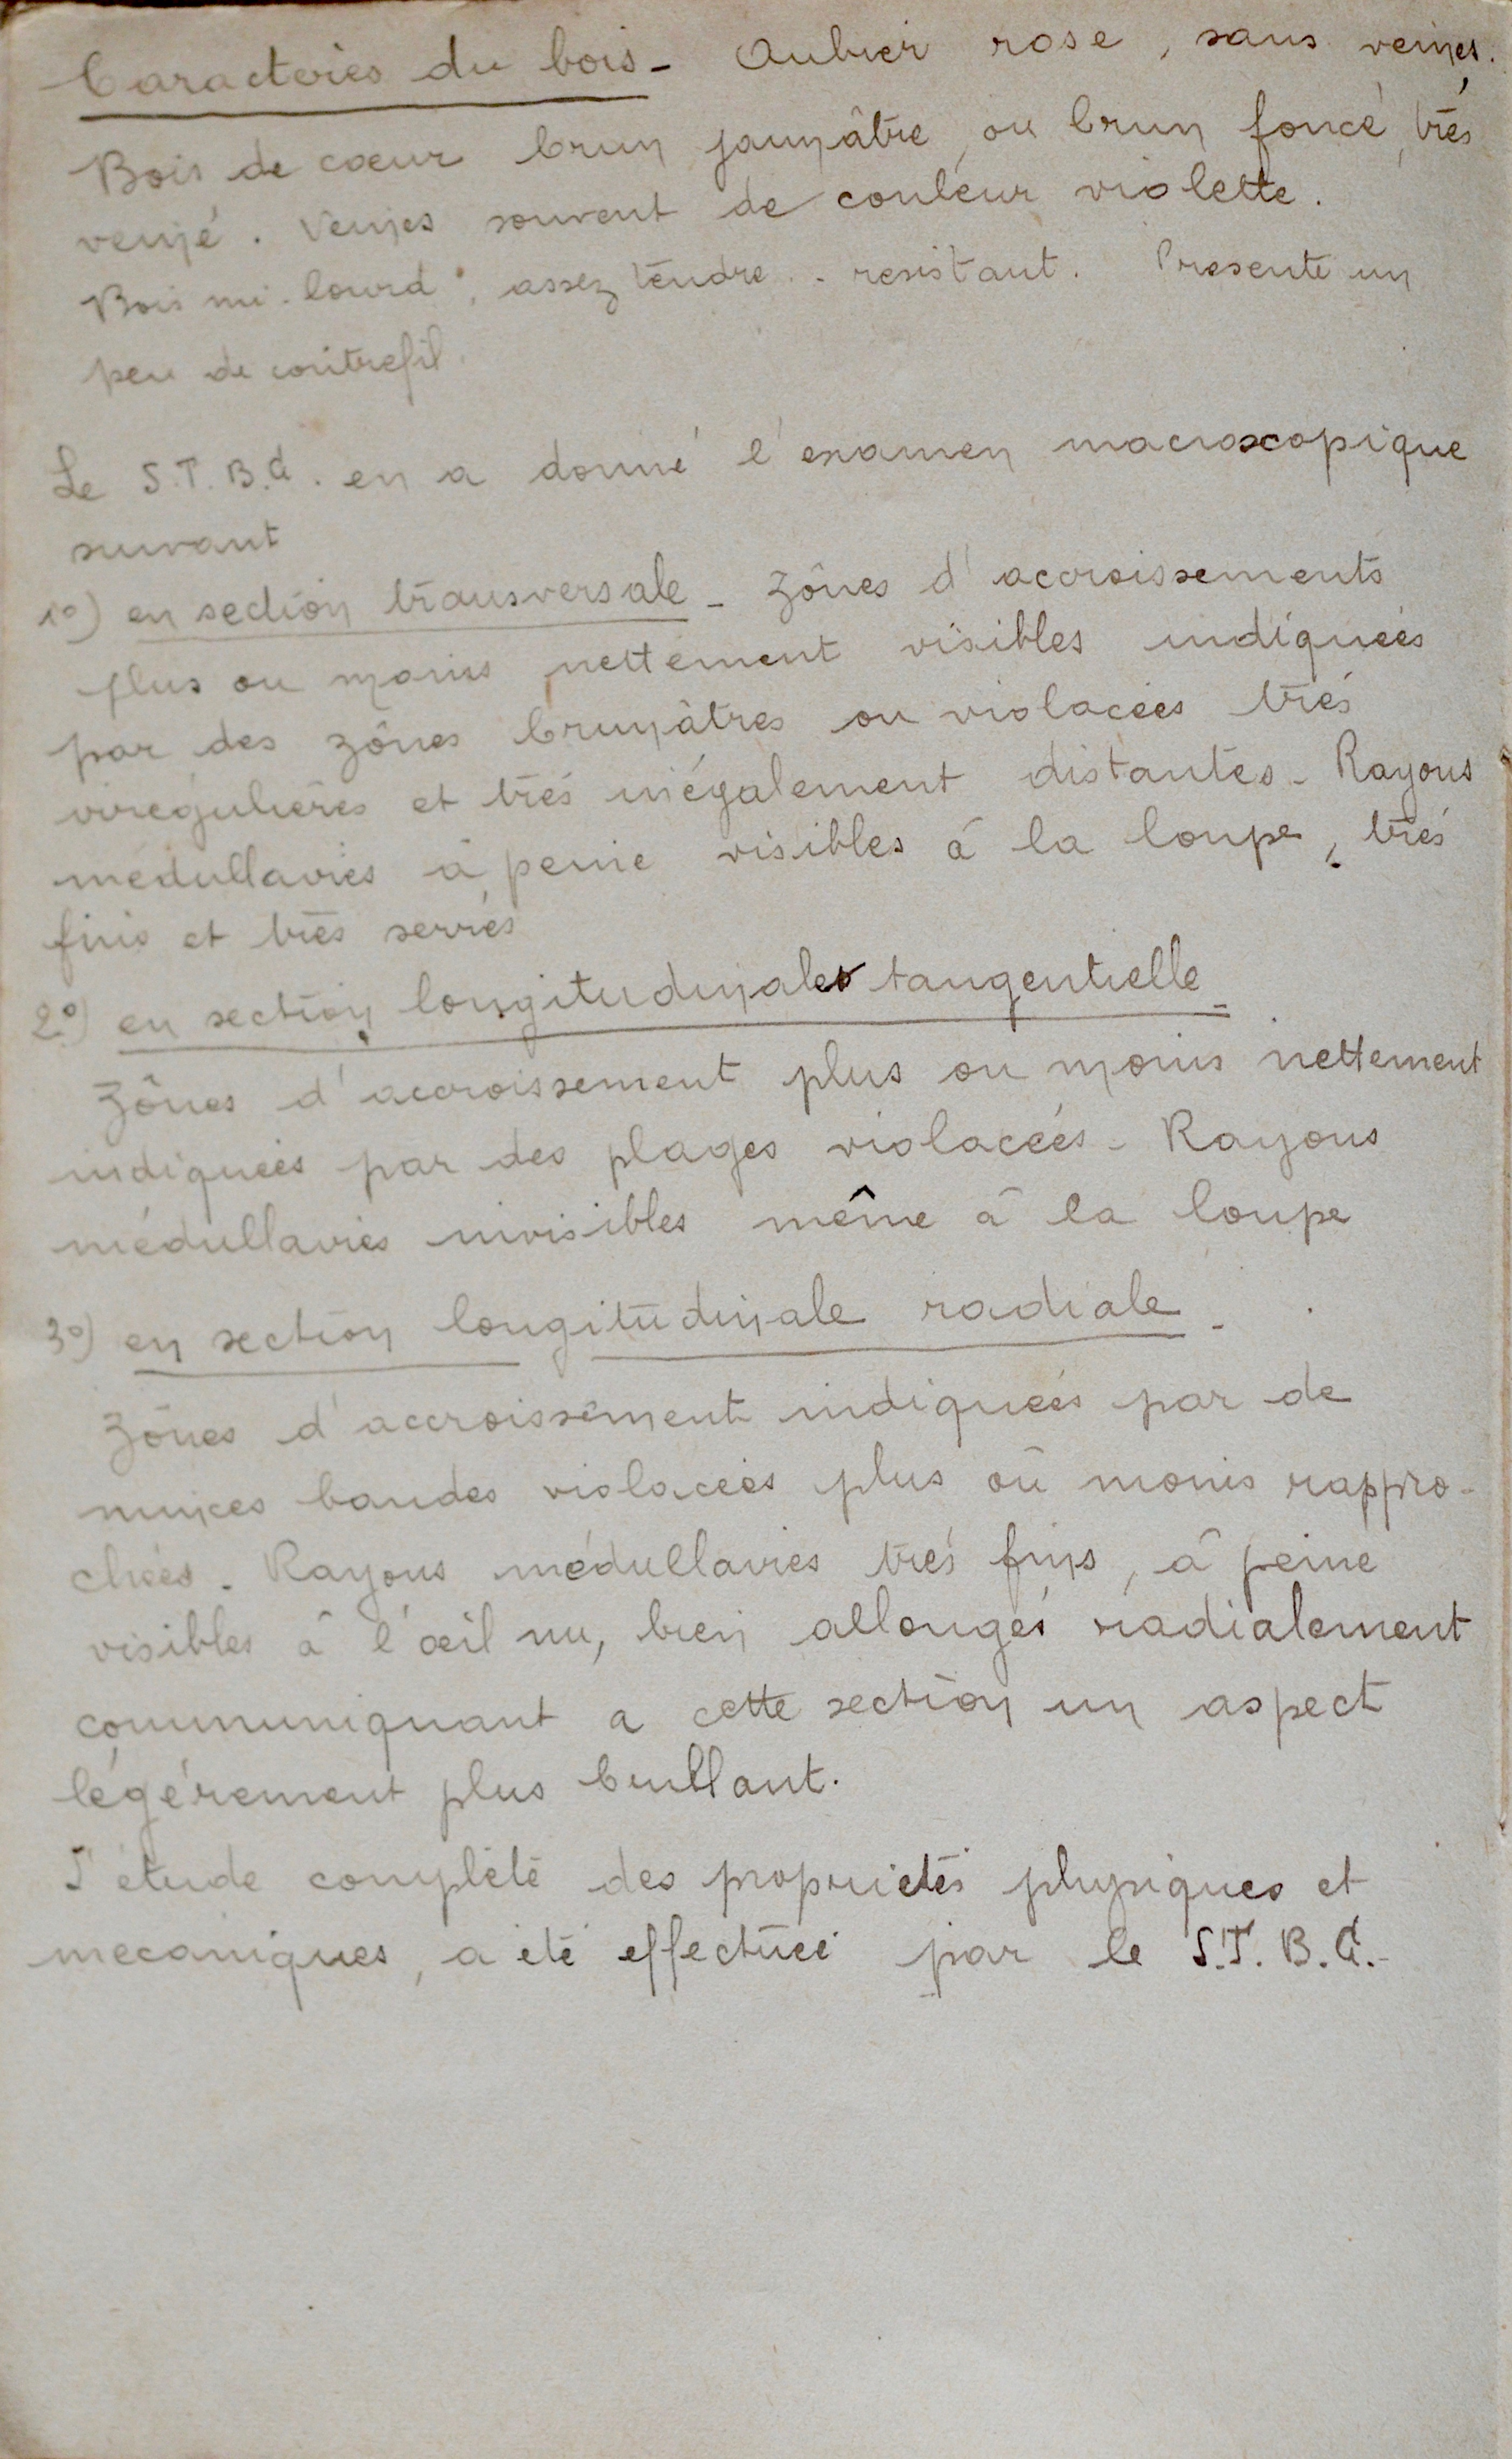 Caractères du bois - Aubier rose, sans veines.
Bois de cœur brun jaunâtre, ou brun foncé, très
veiné. Veines souvent de couleur violette.
Bois mi-lourd, assez tendre - resistant. Presente un
peu de contrefil.
Le S.T.B.A. en a donné l'examen macroscopique
suivant
1°) en section transversale - Zônes d'accroissements
plus ou moins nettement visibles indiquées
par des zônes brunâtres ou violacées très
irrégulières et très inégalement distantes - Rayons
médullaires à peine visibles à la loupe, très
fins et très serrés
2°) en section longitudinale tangentielle -
Zônes d'accroissement plus ou moins nettement
indiquées par des plages violacées - Rayons
médullaires invisibles même à la loupe
3°) en section longitudinale radiale -
Zônes d'accroissement indiquées par de
minces bandes violacées plus où moins rappro-
chées. Rayons médullaires très fins, à peine
visibles à l'œil nu, bien allongés radialement
communiquant a cette section un aspect
légérement plus brillant.
L'étude complète des propriétés physiques et
mécaniques, a été effectuée par le S.T.B.A.-